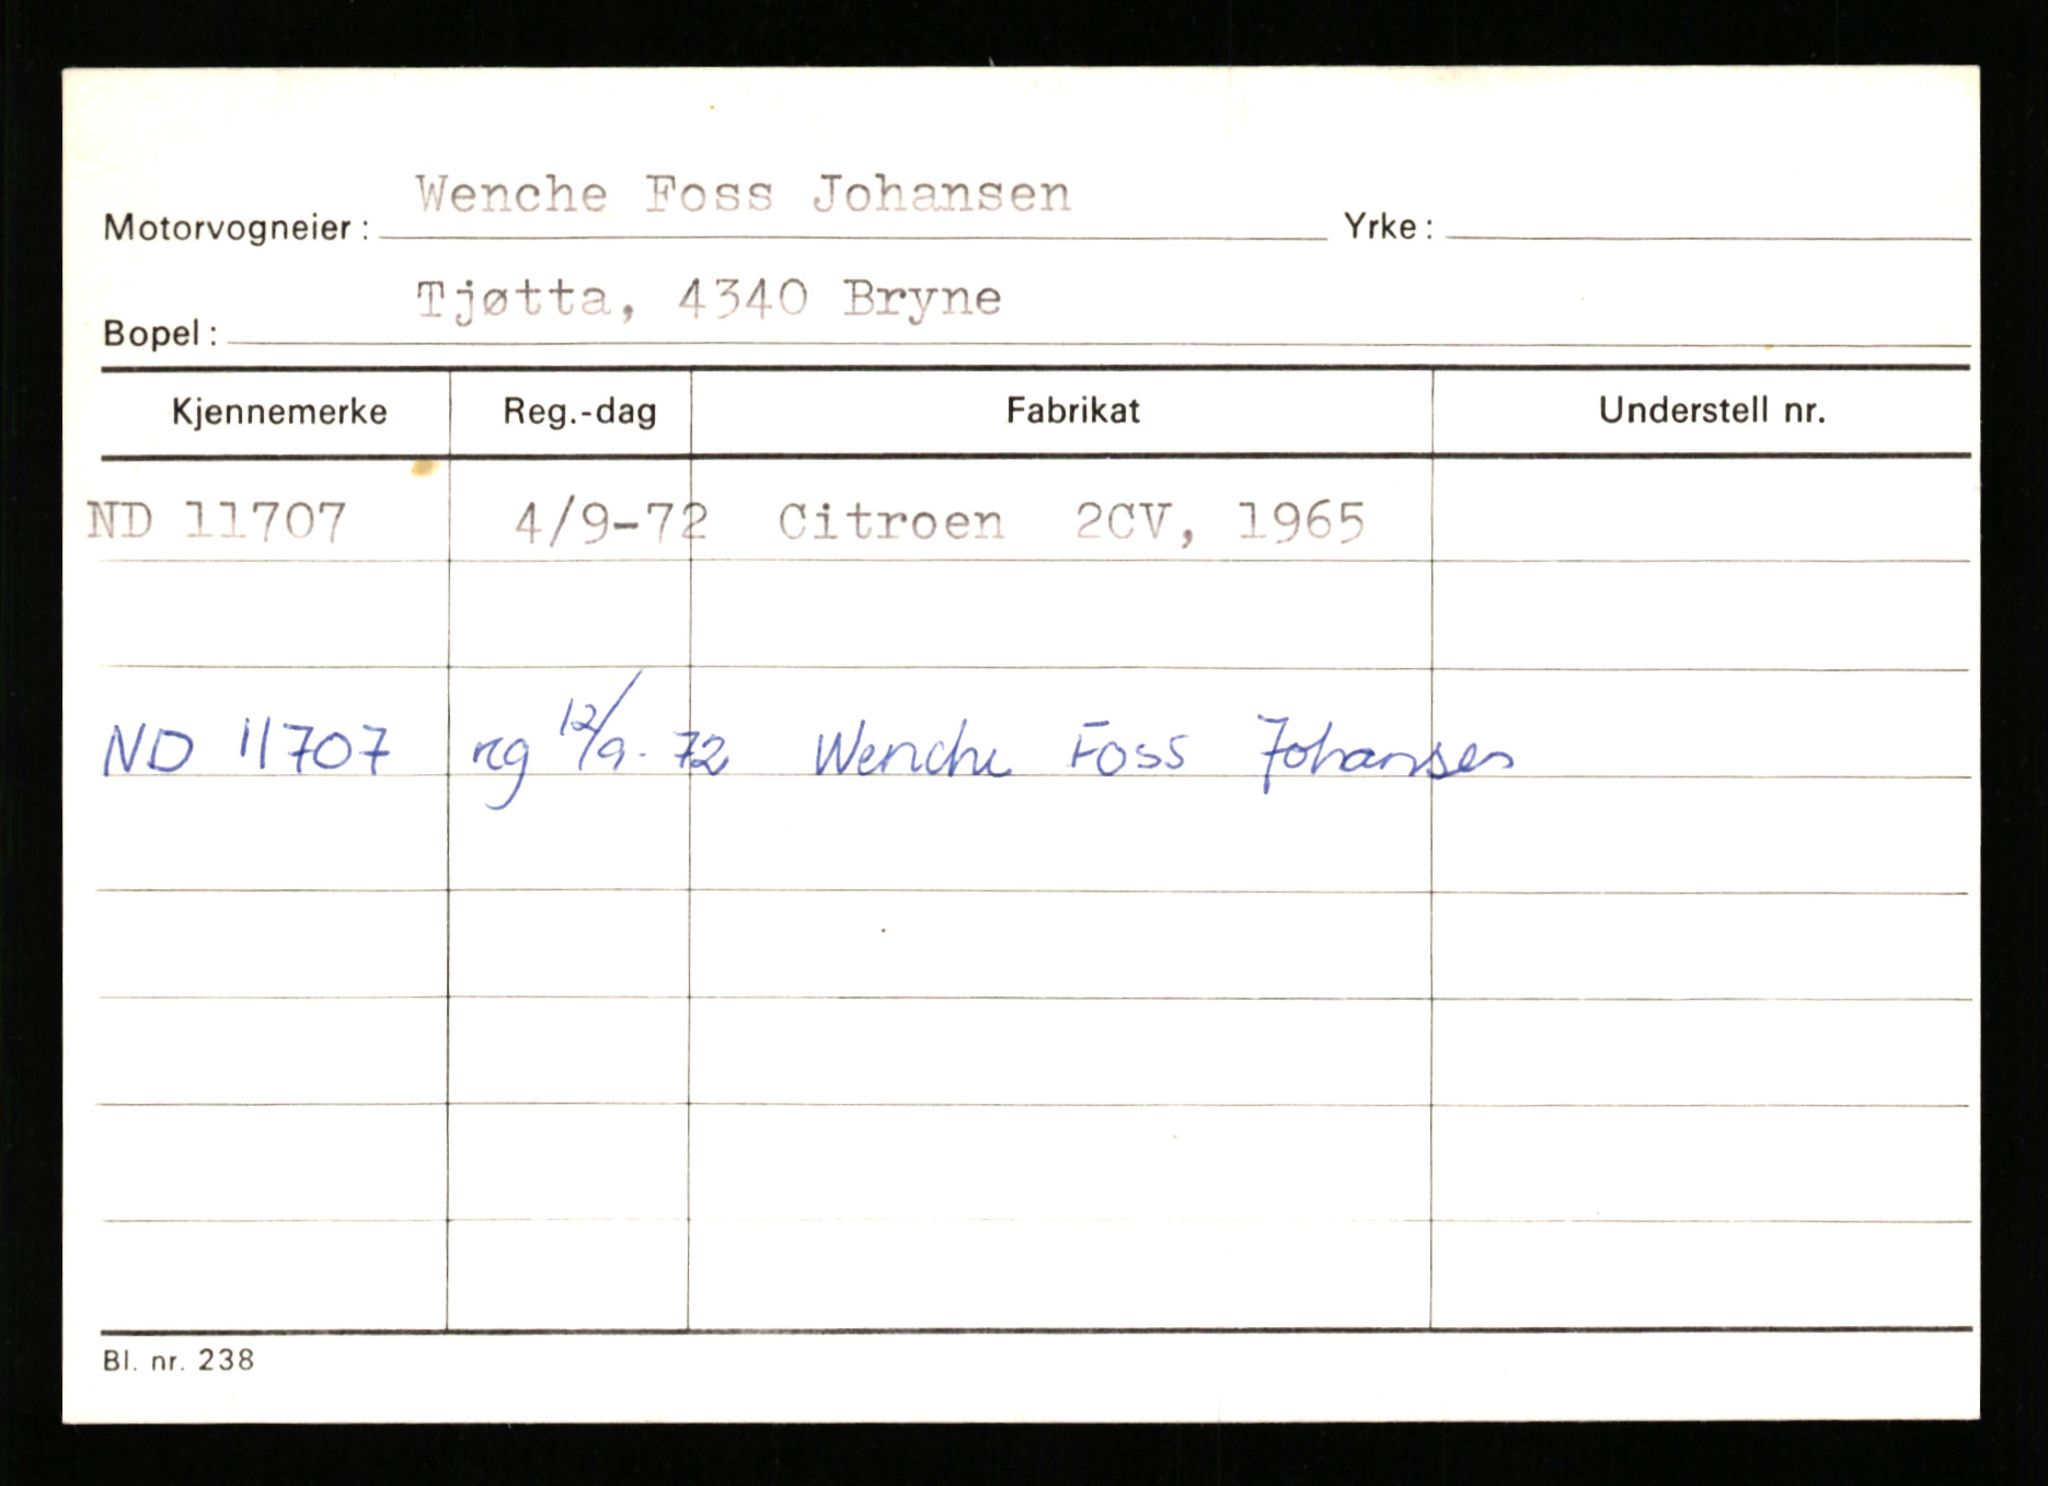 Motorvogneier: Wenche Foss Johansen Yrke:
Bopel: Tjøtta, 4340 Bryne
Kjennemerke Reg.-dag Fabrikat Understell nr.
ND 11707 4/9-72 Citroen 2CV, 1965
ND 11707 rg 12/9-72 Wenche Foss Johansen
Bl. nr. 238